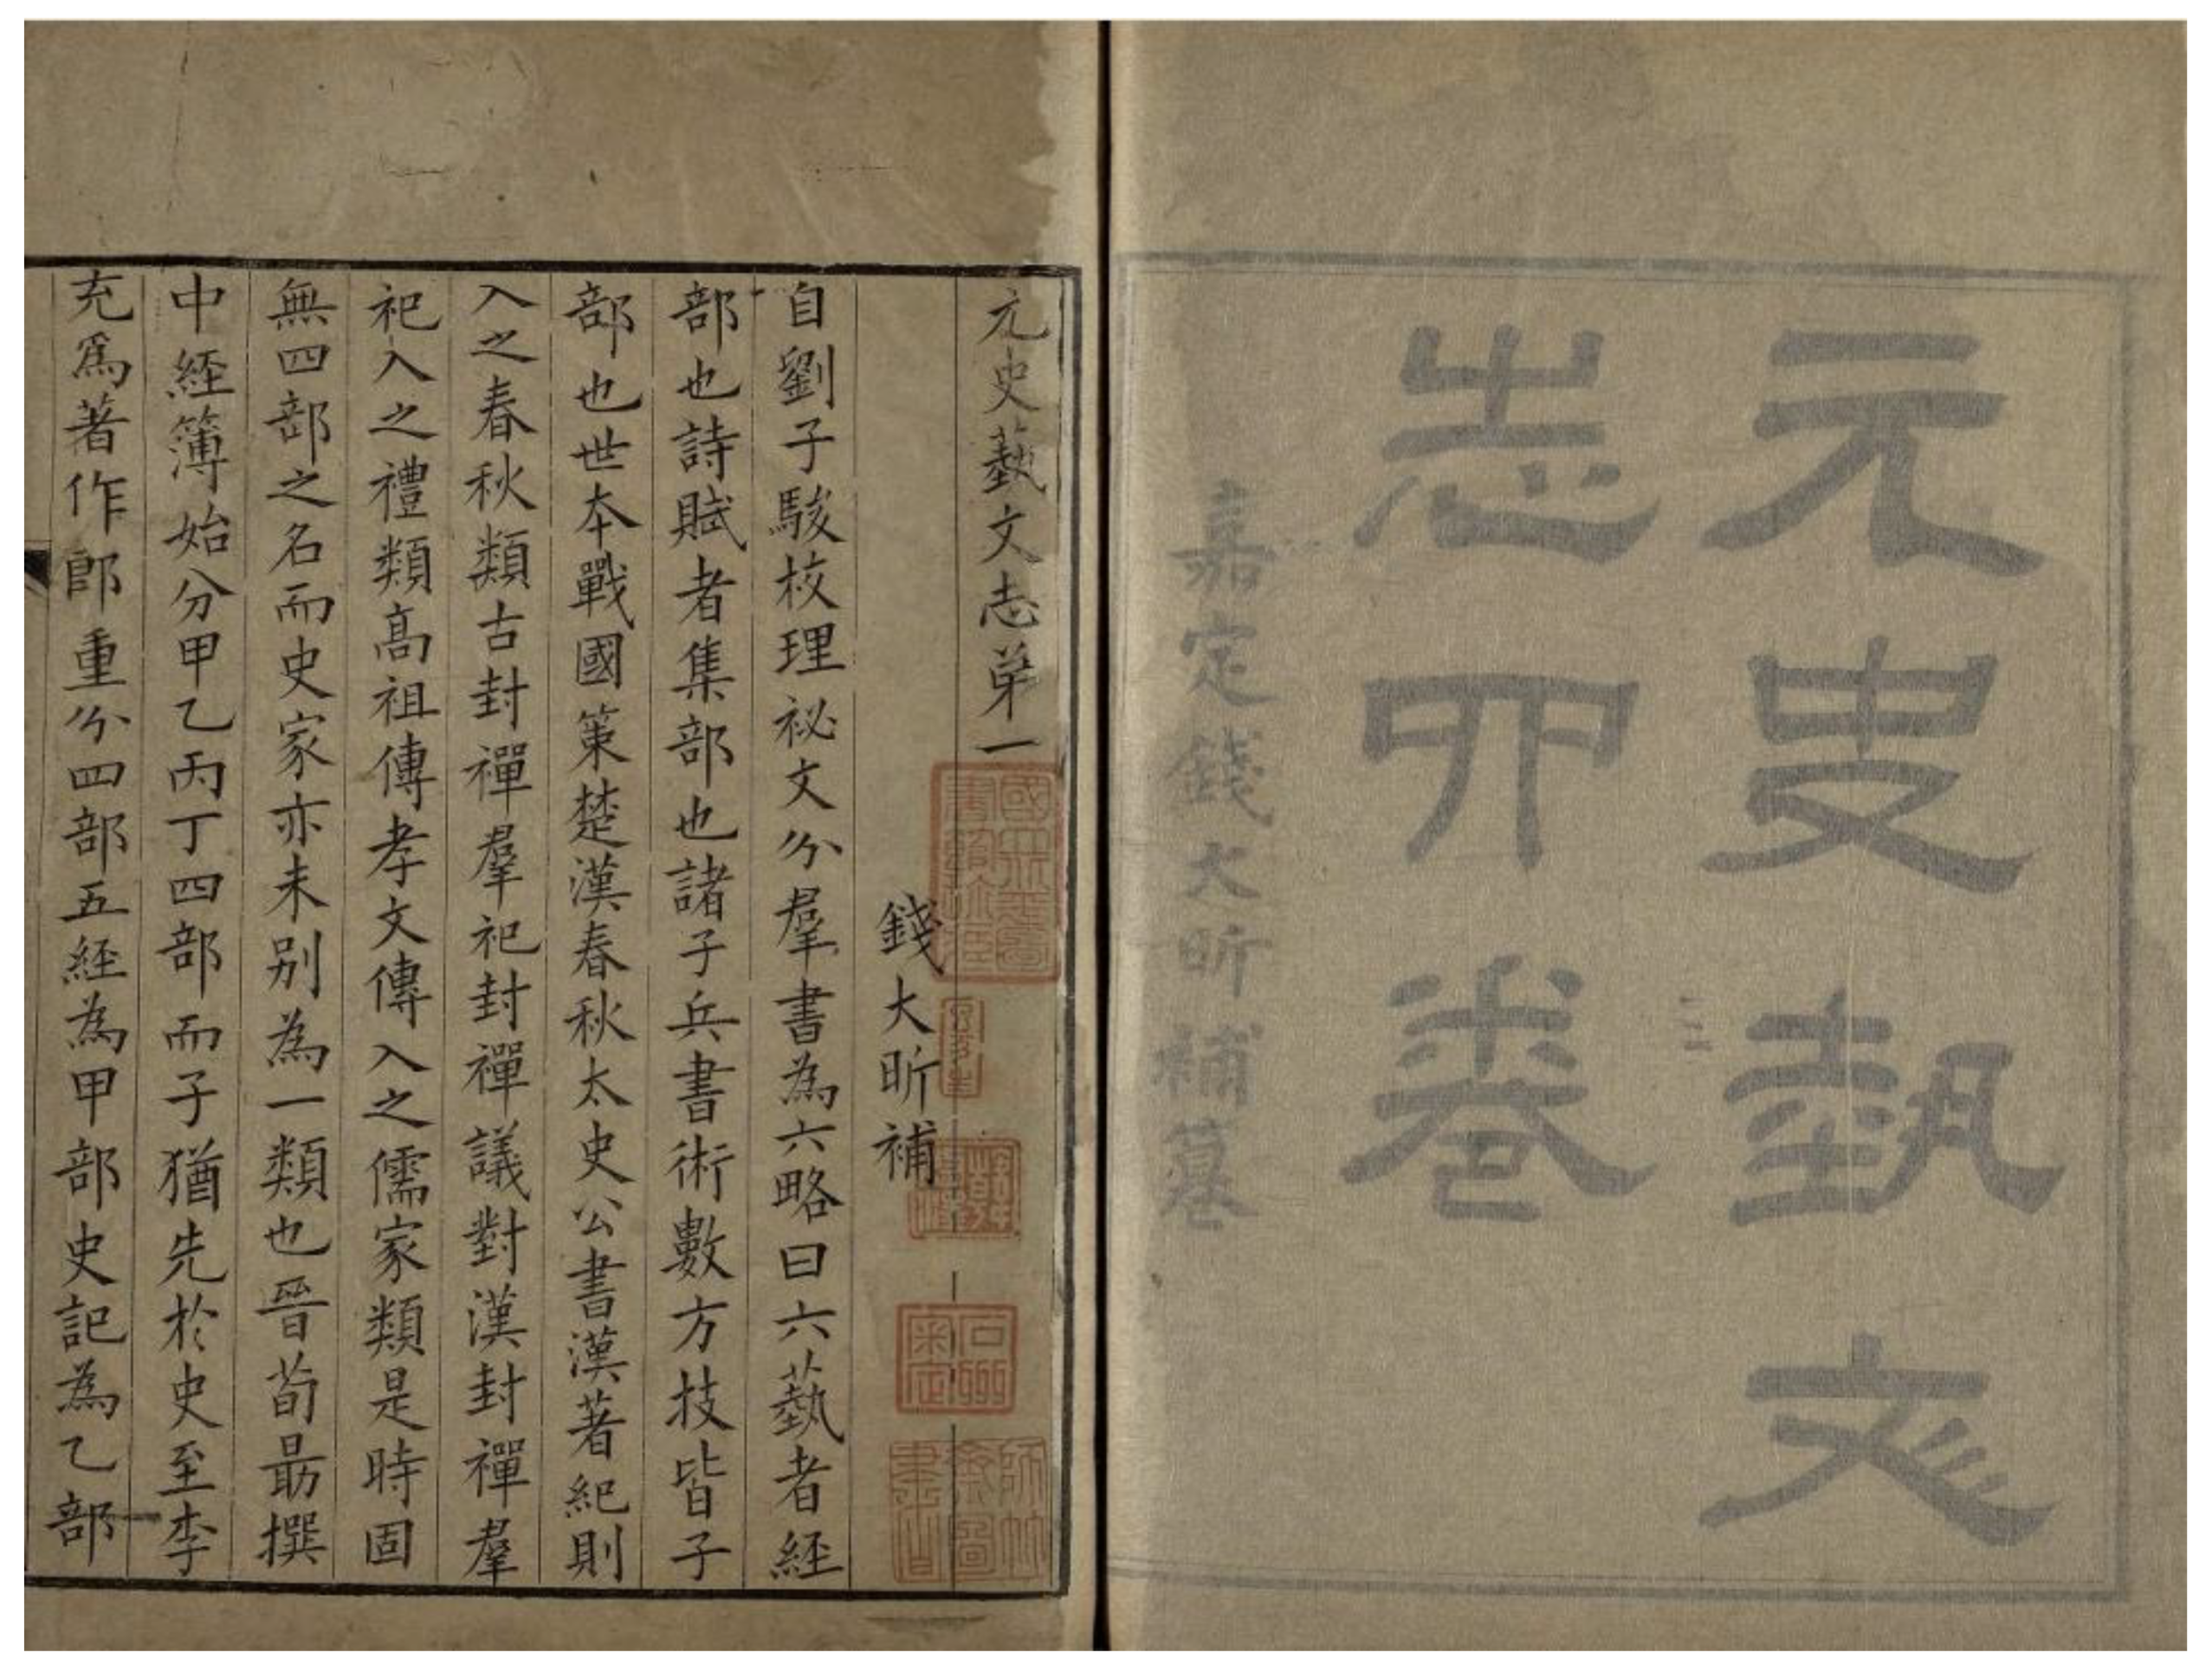 元史藝文
志四卷
嘉定錢大昕補纂
元史藝文志弟一
錢大昕補
自劉子駿校理祕文分羣書為六略曰六藝者經
部也詩賦者集部也諸子兵書術數方技皆子
部也世本戰國策楚漢春秋太史公書漢著紀則
入之春秋類古封禪羣祀封禪議對漢封禪羣
祀入之禮類高祖傳孝文傳入之儒家類是時固
無四部之名而史家亦未別為一類也晉荀勗撰
中經簿始分甲乙丙丁四部而子猶先於史至李
充爲著作郎重分四部五經為甲部史記為乙部